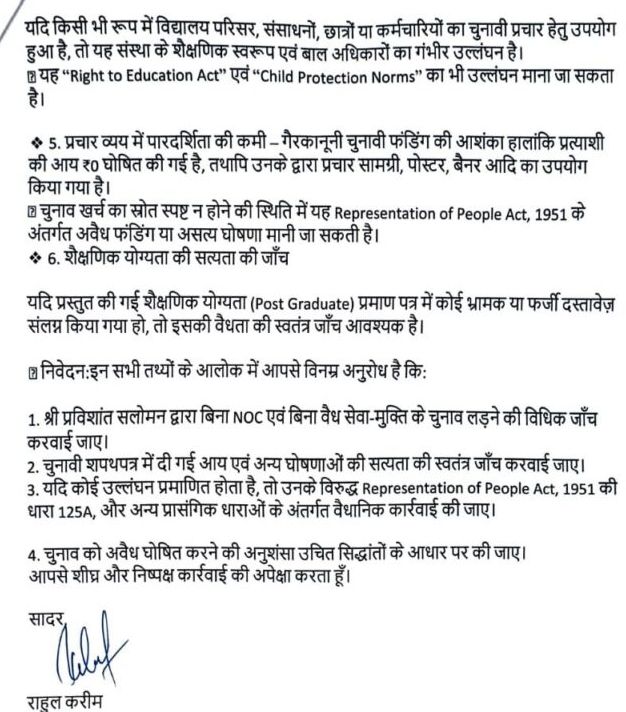 यदि किसी भी रूप में विद्यालय परिसर, संसाधनों, छात्रों या कर्मचारियों का चुनावी प्रचार हेतु उपयोग
हुआ है, तो यह संस्था के शैक्षणिक स्वरूप एवं बाल अधिकारों का गंभीर उल्लंघन है।
यह “Right to Education Act” एवं “Child Protection Norms” का भी उल्लंघन माना जा सकता
है।
❖ 5. प्रचार व्यय में पारदर्शिता की कमी – गैरकानूनी चुनावी फंडिंग की आशंका हालांकि प्रत्याशी
की आय ₹0 घोषित की गई है, तथापि उनके द्वारा प्रचार सामग्री, पोस्टर, बैनर आदि का उपयोग
किया गया है।
चुनाव खर्च का स्रोत स्पष्ट न होने की स्थिति में यह Representation of People Act, 1951 के
अंतर्गत अवैध फंडिंग या असत्य घोषणा मानी जा सकती है।
❖ 6. शैक्षणिक योग्यता की सत्यता की जाँच
यदि प्रस्तुत की गई शैक्षणिक योग्यता (Post Graduate) प्रमाण पत्र में कोई भ्रामक या फर्जी दस्तावेज़
संलग्न किया गया हो, तो इसकी वैधता की स्वतंत्र जाँच आवश्यक है।
निवेदन:इन सभी तथ्यों के आलोक में आपसे विनम्र अनुरोध है कि:
1. श्री प्रविशांत सलोमन द्वारा बिना NOC एवं बिना वैध सेवा-मुक्ति के चुनाव लड़ने की विधिक जाँच
करवाई जाए।
2. चुनावी शपथपत्र में दी गई आय एवं अन्य घोषणाओं की सत्यता की स्वतंत्र जाँच करवाई जाए।
3. यदि कोई उल्लंघन प्रमाणित होता है, तो उनके विरुद्ध Representation of People Act, 1951 की
धारा 125A, और अन्य प्रासंगिक धाराओं के अंतर्गत वैधानिक कार्रवाई की जाए।
4. चुनाव को अवैध घोषित करने की अनुशंसा उचित सिद्धांतों के आधार पर की जाए।
आपसे शीघ्र और निष्पक्ष कार्रवाई की अपेक्षा करता हूँ।
सादर,
राहुल करीम